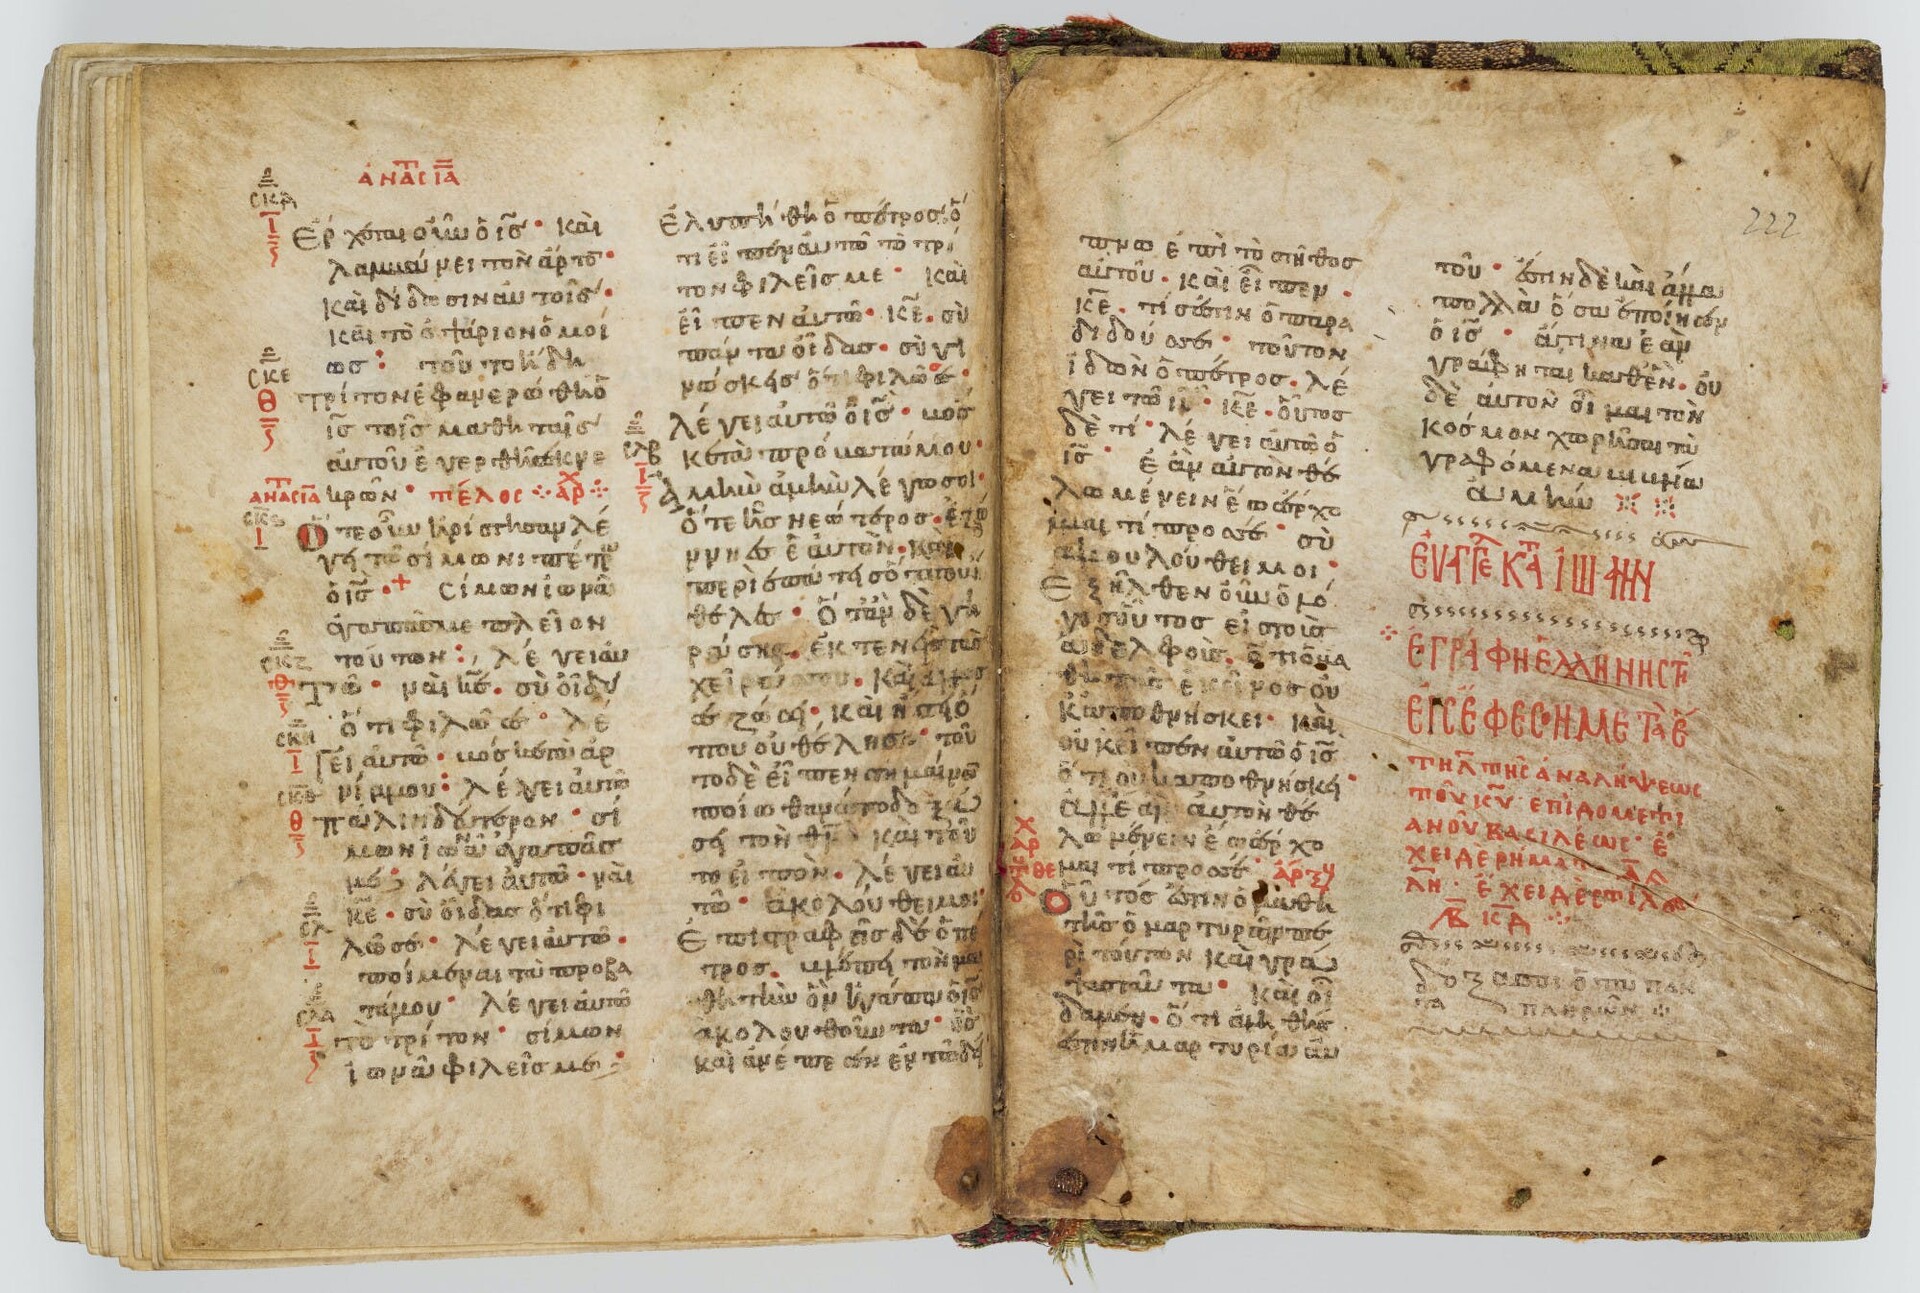 ἀνασ ια
Ἔρχεται οὖν ὁ ις· καὶ
λαμβάνει τὸν ἄρτο
καὶ δίδωσιν αὐτοῖς·
καὶ τὸ ὀψάριον ὁμοί
ως: τοῦτο ἤδη
τρίτον ἐφανερώθη ὁ
ις τοῖς μαθηταῖς
αὐτοῦ ἐγερθεὶς ἐκ νε
κρῶν· τέλος ἀρχ
Ὅτε οὖν ἠρίστησαν λέ
γει τῷ σίμωνι πέτρω
ὁ ις· + σίμων ἰωνᾶ
ἀγαπᾶς με πλεῖον
τούτων: λέγει αὐ
τῷ· ναὶ κε. σὺ οἶδας
ὅτι φιλῶ σε· λέ
γει αὐτῷ· βόσκε τὰ ἀρ
νία μου: λέγει αὐτῷ
πάλιν δεύτερον· σί
μων ἰωνᾶ ἀγαπᾶς
με; λέγει αὐτῷ· ναὶ
κε· σὺ οἶδας ὅτι φι
λῶ σε· λέγει αὐτῷ·
ποίμαινε τὰ πρόβα
τά μου· λέγει αὐτῷ
τὸ τρίτον· σίμων
ἰωνᾶ φιλεῖς με;
Ἐλυπήθη ὁ πέτρος ὅ
τι εἶπεν αὐτῷ τὸ τρί
τον φιλεῖς με· καὶ
εἶπεν αὐτῷ· κε. σὺ
πάντα οἶδας· σὺ γι
νώσκεις ὅτι φιλῶ σε·
λέγει αὐτῷ ὁ ις· βόσ
κε τὰ πρόβατά μου·
Ἀμὴν ἀμὴν λέγω σοι·
ὅτε ἦς νεώτερος· ἐζώ
ννυες ἑαυτὸν· καὶ
περιεπάτεις ὅπου
ἤθελες· ὅταν δὲ γη
ράσῃς. ἐκτενεῖς τὰς
χεῖράς σου. καὶ ἄλλος
σε ζώσει· καὶ οἴσει ὅ
που οὐ θέλεις· τοῦ
το δὲ εἶπεν σημαίνω
ποίω θανάτω δοξά
σει τὸν θν· καὶ τοῦ
το εἰπὼν· λέγει αὐ
τῷ· ἀκολούθει μοι·
Ἐπιστραφεὶς δὲ ὁ πέ
τρος. βλέπει τὸν μα
θητὴν ὃν ἠγάπα ὁ ις
ἀκολουθοῦντα· ὃς
καὶ ἀνέπεσεν ἐν τῷ δεί
πνω ἐπὶ τὸ στῆθος
αὐτοῦ. καὶ εἶπεν·
κε. τίς ἐστιν ὁ παρα
διδούς σε· τοῦτον
ἰδὼν ὁ πέτρος. λέ
γει τῷ ιυ· κε. οὗτος
δὲ τί· λέγει αὐτῷ ὁ
ις· ἐὰν αὐτὸν θέ
λω μένειν ἕως ἔρχο
μαι τί πρὸς σέ· σὺ
ἀκολούθει μοι·
Ἐξῆλθεν οὖν ὁ λό
γος οὗτος εἰς τοὺς
ἀδελφοὺς. ὅτι ὁ μα
θητὴς ἐκεῖνος οὐ
κ ἀποθνήσκει· καὶ
οὐκ εἶπεν αὐτῷ ὁ ις
ὅτι οὐκ ἀποθνήσκει·
ἀλλ ἐὰν αὐτὸν θέ
λω μένειν ἕως ἔρχο
μαι τί πρὸς σέ·
Οὗτός ἐστιν ὁ μαθη
τὴς ὁ μαρτυρῶν πε
ρὶ τούτων καὶ γρά
ψας ταῦτα· καὶ οἴ
δαμεν· ὅτι ἀληθής
ἐστιν ἡ μαρτυρία αὐ
τοῦ· ἔστιν δὲ καὶ ἄλλα
πολλὰ ὅσα ἐποίησεν
ὁ ις· ἅτινα ἐὰν
γράφηται καθ ἓν· οὐ
δὲ αὐτὸν οἶμαι τὸν
κόσμον χωρῆσαι τὰ
γραφόμενα βιβλία
ἀμὴν
ΕΥΑΓΓΕ ΚΑΤ ΙΩΑΝΝ
ΕΓΡΑΦΗ ΕΛΛΗΝΗΣΤΙ
ΕΙΣ ΕΦΕΣΟΝ ΜΕΤΑ Ε
ΤΗ Λ ΤΗΣ ΑΝΑΛΗΨΕΩΣ
ΤΟΥ ΚΥ· ΕΠΙ ΔΟΜΕΤΙ
ΑΝΟΥ ΒΑΣΙΛΕΩΣ· Ε
ΧΕΙ ΔΕ ΡΗΜΑΤ
ΛΗ· ΕΧΕΙ ΔΕ ΣΤΙΧ
ΒΚΔ
δόξα σοι ὁ τὰ πάν
τα πληρῶν
222